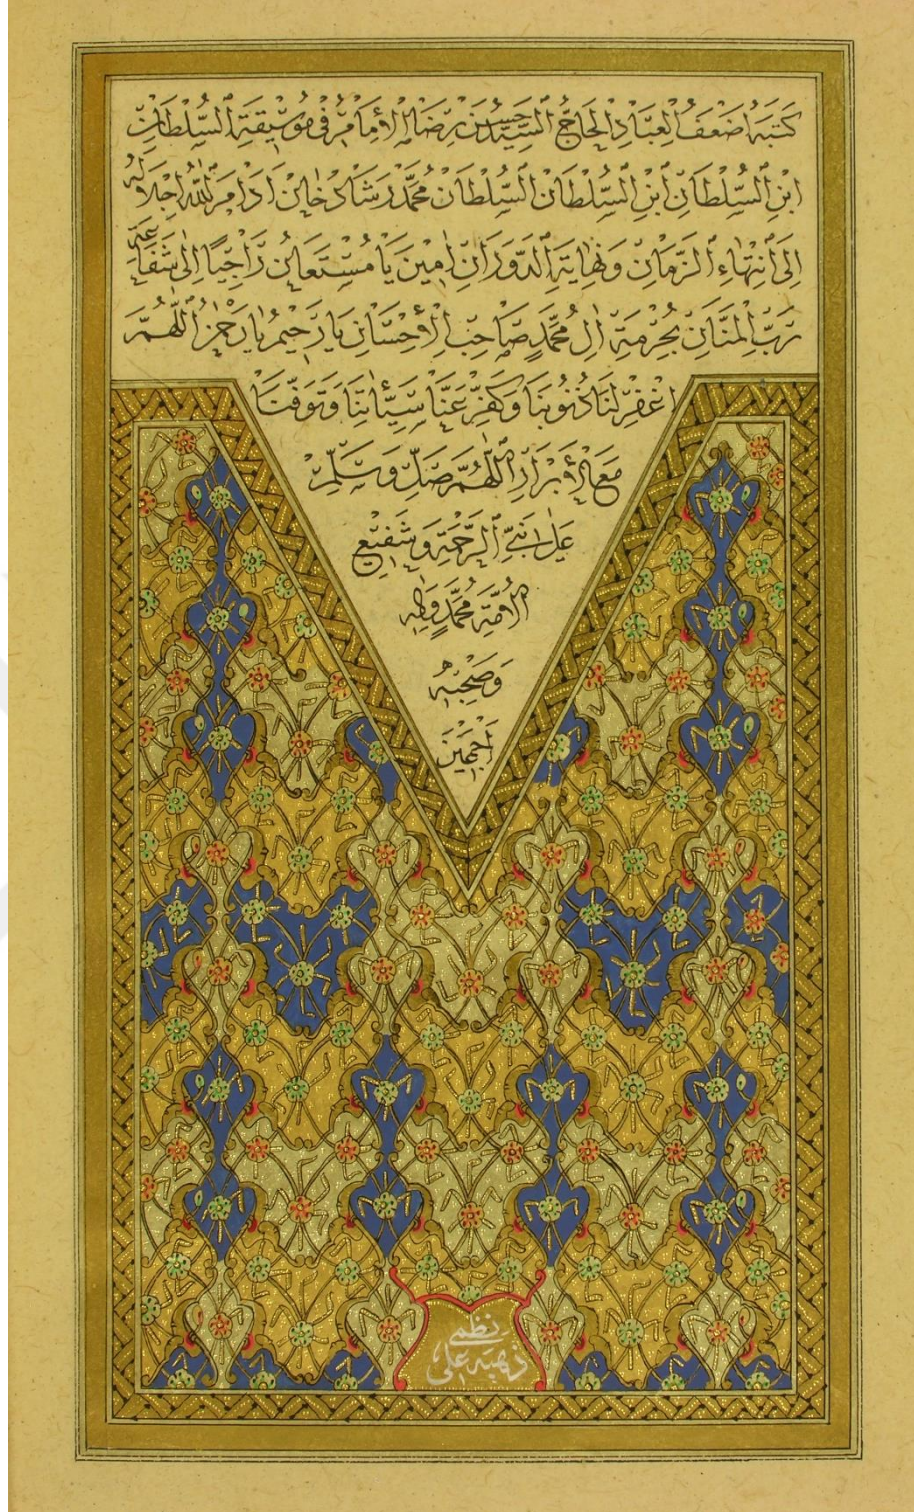 كَتَبَهُ اَضْعَفُ الْعِبَادِ اَلْحَاجُّ السَّيِّدُ حَسَنْ رِضَا اَلْاِمَامُ فِى مُوسِيقَةِ السُّلْطَانِ
ابْنِ السُّلْطَانِ ابْنِ السُّلْطَانْ السُّلْطَانْ مُحَمَّدْ رَشَادْ خَانْ اَدَامَ اللّٰهُ اِجْلَالَهُ
اِلَى انْتِهَاءِ الزَّمَانِ وَنِهَايَةِ الدَّوَرَانِ اٰمِينَ يَا مُسْتَعَانُ رَاجِيًا اِلٰى شَفَاعَةِ
رَبِّ الْمَنَّانِ بِحُرْمَةِ اٰلِ مُحَمَّدٍ صَاحِبِ الْاِحْسَانِ يَا رَحِيمُ يَا رَحْمٰنُ اَللّٰهُمَّ
اغْفِرْ لَنَا ذُنُوبَنَا وَكَفِّرْ عَنَّا سَيِّئَاتِنَا وَتَوَفَّنَا
مَعَ الْاَبْرَارِ اَللّٰهُمَّ صَلِّ وَسَلِّمْ
عَلٰى نَبِىِّ الرَّحْمَةِ وَشَفِيعِ
الْاُمَّةِ مُحَمَّدٍ وَاٰلِهِ
وَصَحْبِهِ
اَجْمَعِينَ
نظمى
ذهبه على